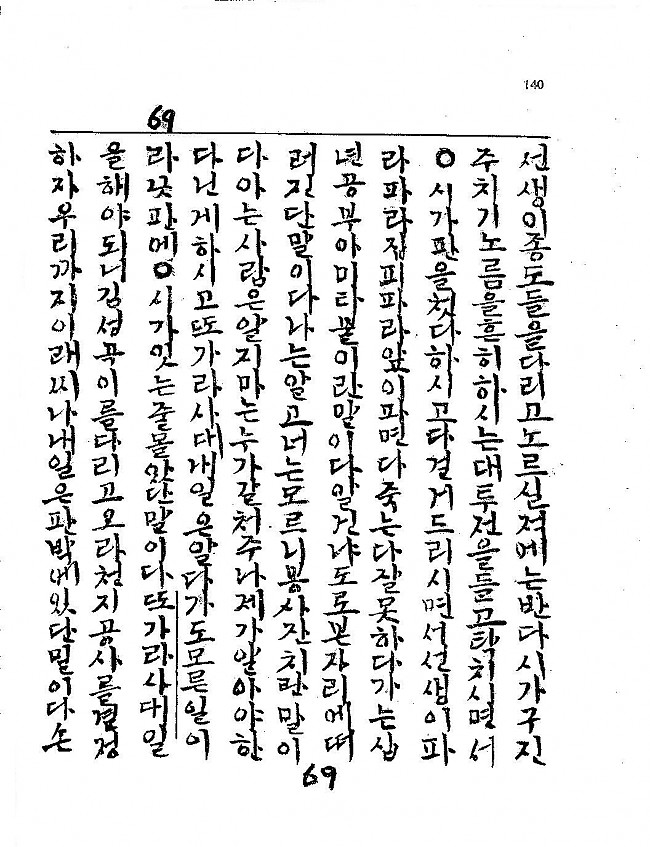 140
69
선생이종도들을다리고노르실져에는반다시가구진
주치기노름을흔히하시는대투전을들고탁치시며서
○시가판을첫다하시고다걷거드리시면서선생이파
라파라집피파라얖이파면다죽는다잘못하다가는십
년공부아미타불이란말이다알건냐도로본자리에떠
러진단말이다나는알고너는모르니봉사잔치란말이
다아는사람은알지마는누가갈처주나제가알아야한
다닌게하시고또가라사대내일은알다가도모른일이
라낫판에○시가잇는줄몰았단말이다또가라사대일
을해야되니김성국이를다리고오라천지공사를결정
하자우리까지이래씨나내일은판밖에있단말이다손
69